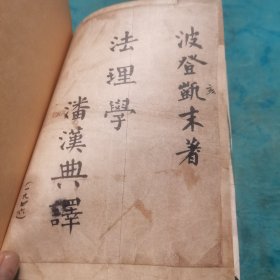 波登凱末著
法理學
潘漢典譯